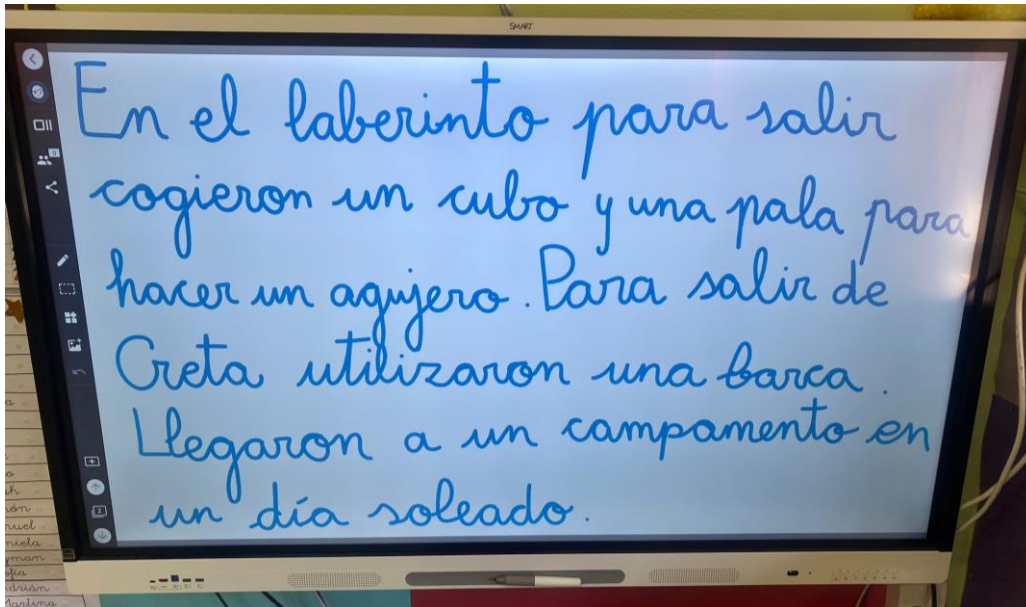 SMART
En el laberinto para salir
cogieron un cubo y una pala para
hacer un agujero. Para salir de
Creta utilizaron una barca.
Llegaron a un campamento en
un día soleado.